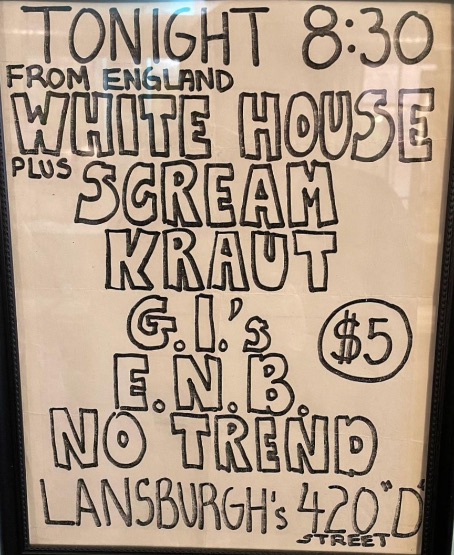 TONIGHT 8:30
FROM ENGLAND
WHITE HOUSE
PLUS SCREAM
KRAUT
G.I.'s
$5
E.N.B.
NO TREND
LANSBURGH's 420 "D"
STREET